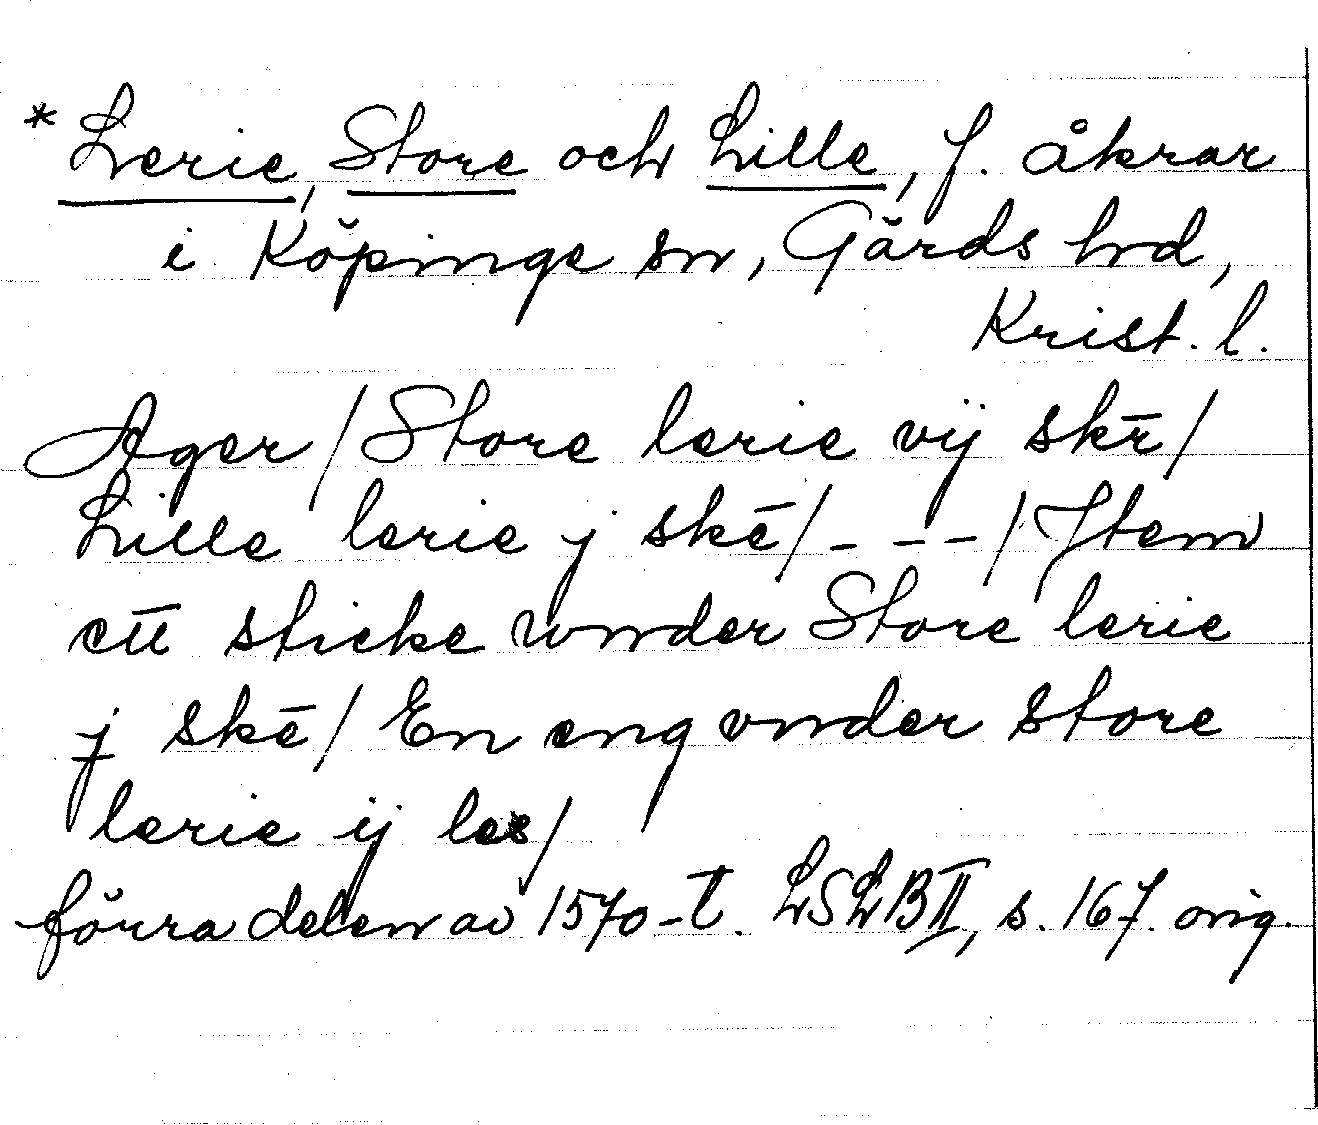 * Lerie, Store och Lille, f. åkrar
i Köpinge sn, Gärds hd,
Krist. l.
Ager / Store lerie vij skē /
Lille lerie j skē / - - - / Jtem
ett sticke wnder Store lerie
j skē / En eng vnder store
lerie ij les /
förra delen av 1570-t. LSLB II, s. 167. orig.